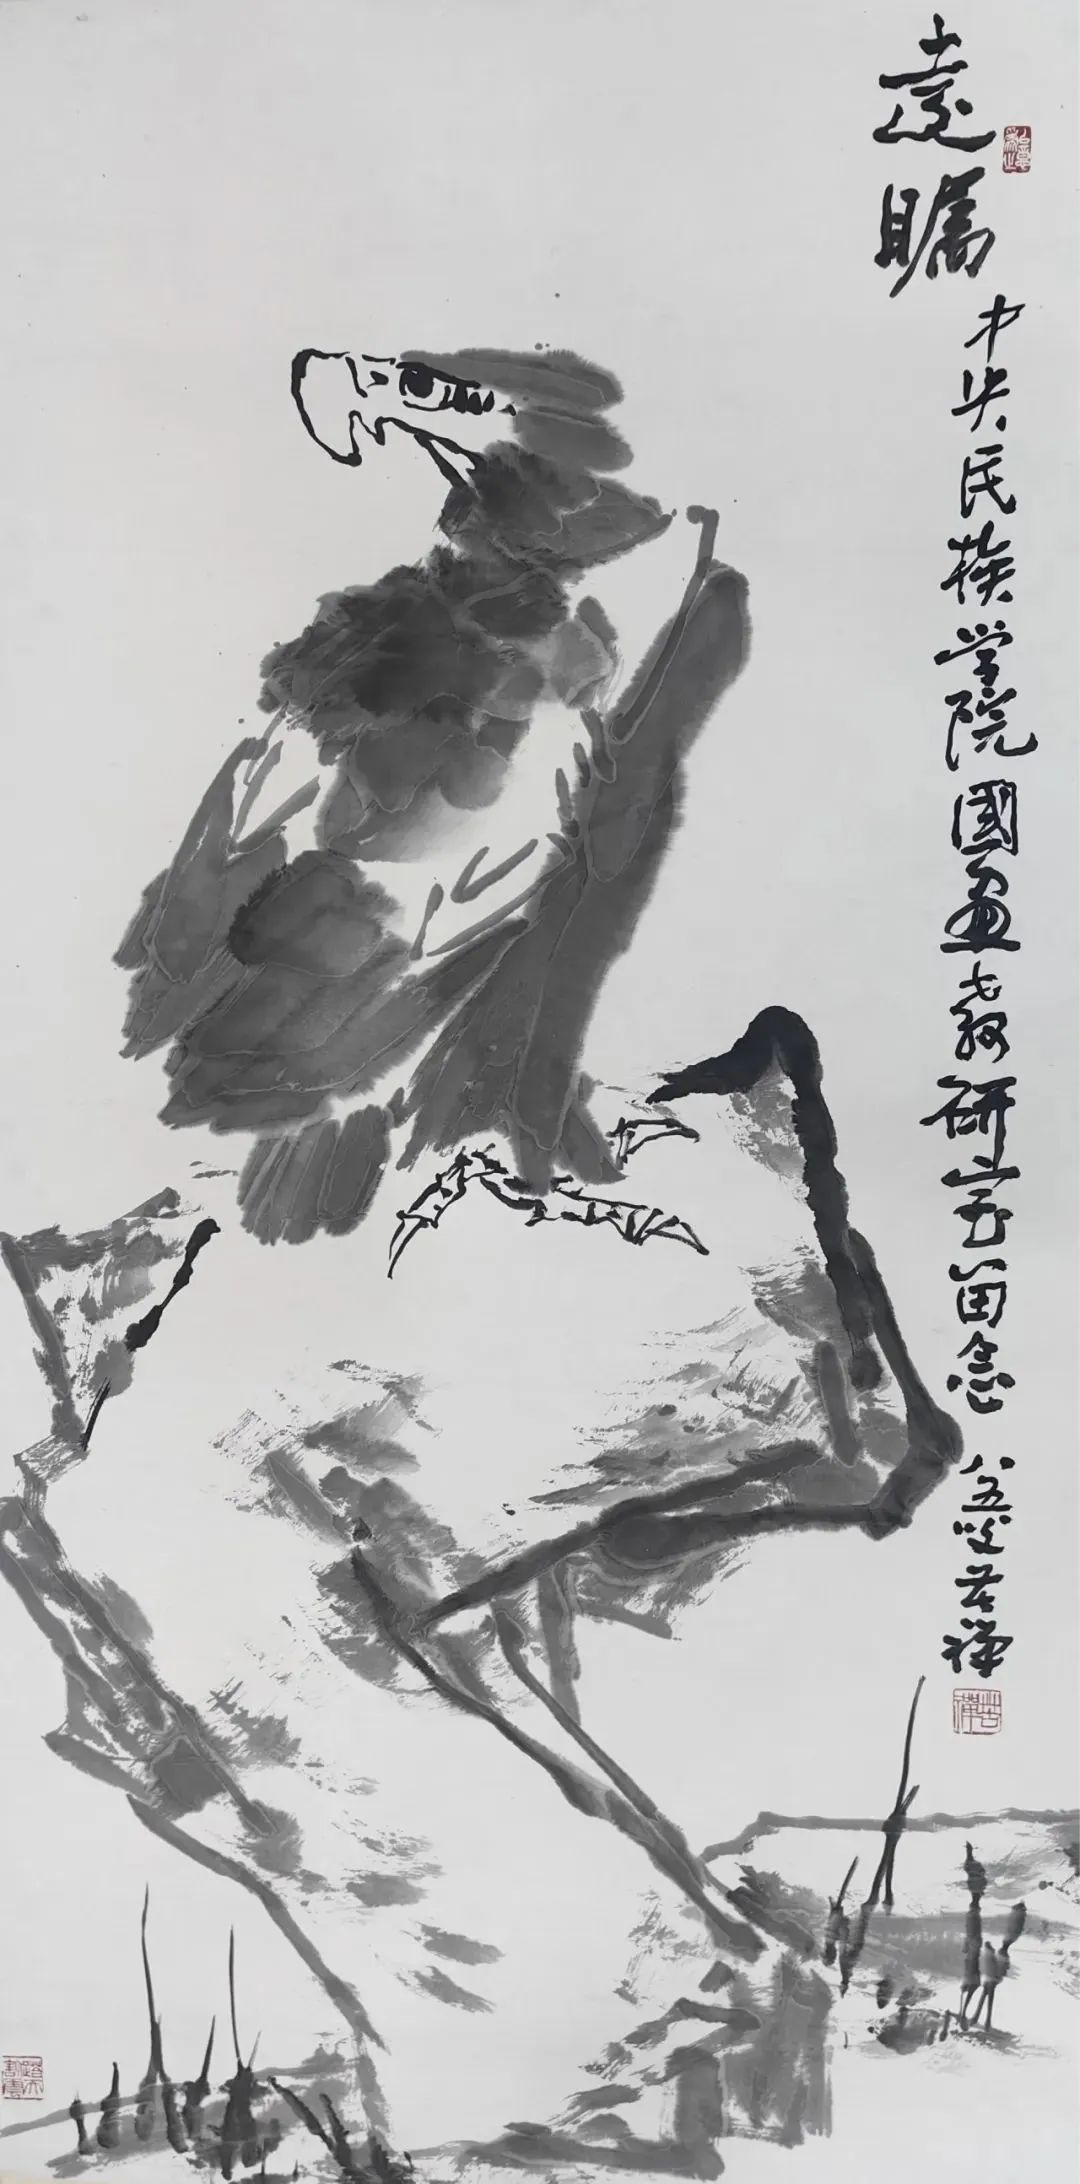 遠瞩
中央民族学院國畫教研室留念
八五叟苦禅
苦禅